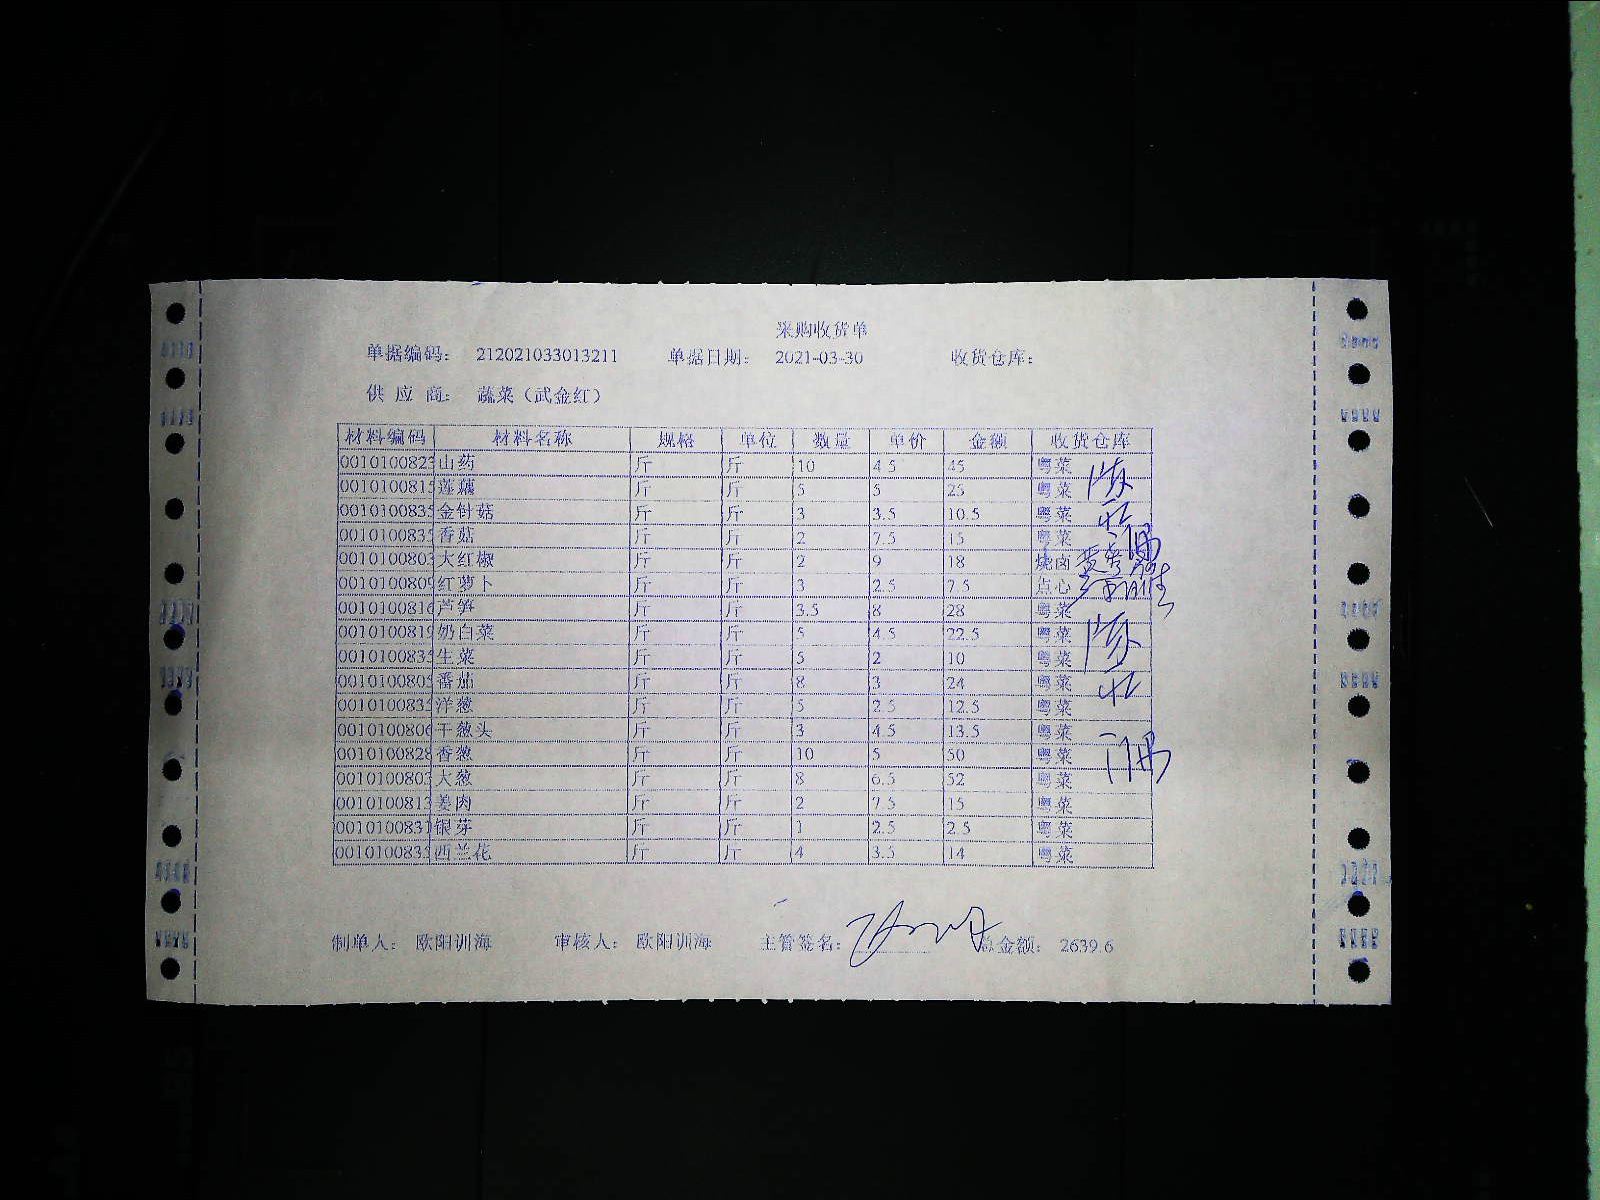 采购收货单
单据编码: 212021033013211 单据日期: 2021-03-30 收货仓库:
供 应 商: 蔬菜（武金红）
材料编码 材料名称 规格 单位 数量 单价 金额 收货仓库
0010100823 山药 斤 斤 10 4.5 45 粤菜
0010100815 莲藕 斤 斤 5 5 25 粤菜
0010100835 金针菇 斤 斤 3 3.5 10.5 粤菜
0010100835 香菇 斤 斤 2 7.5 15 粤菜
0010100803 大红椒 斤 斤 2 9 18 烧卤
0010100809 红萝卜 斤 斤 3 2.5 7.5 点心
0010100816 芦笋 斤 斤 3.5 8 28 粤菜
0010100819 奶白菜 斤 斤 5 4.5 22.5 粤菜
0010100835 生菜 斤 斤 5 2 10 粤菜
0010100805 番茄 斤 斤 8 3 24 粤菜
0010100835 洋葱 斤 斤 5 2.5 12.5 粤菜
0010100806 干葱头 斤 斤 3 4.5 13.5 粤菜
0010100828 香葱 斤 斤 10 5 50 粤菜
0010100803 大葱 斤 斤 8 6.5 52 粤菜
0010100813 姜肉 斤 斤 2 7.5 15 粤菜
0010100831 银芽 斤 斤 1 2.5 2.5 粤菜
0010100833 西兰花 斤 斤 4 3.5 14 粤菜
制单人: 欧阳训海 审核人: 欧阳训海 主管签名: 总金额: 2639.6